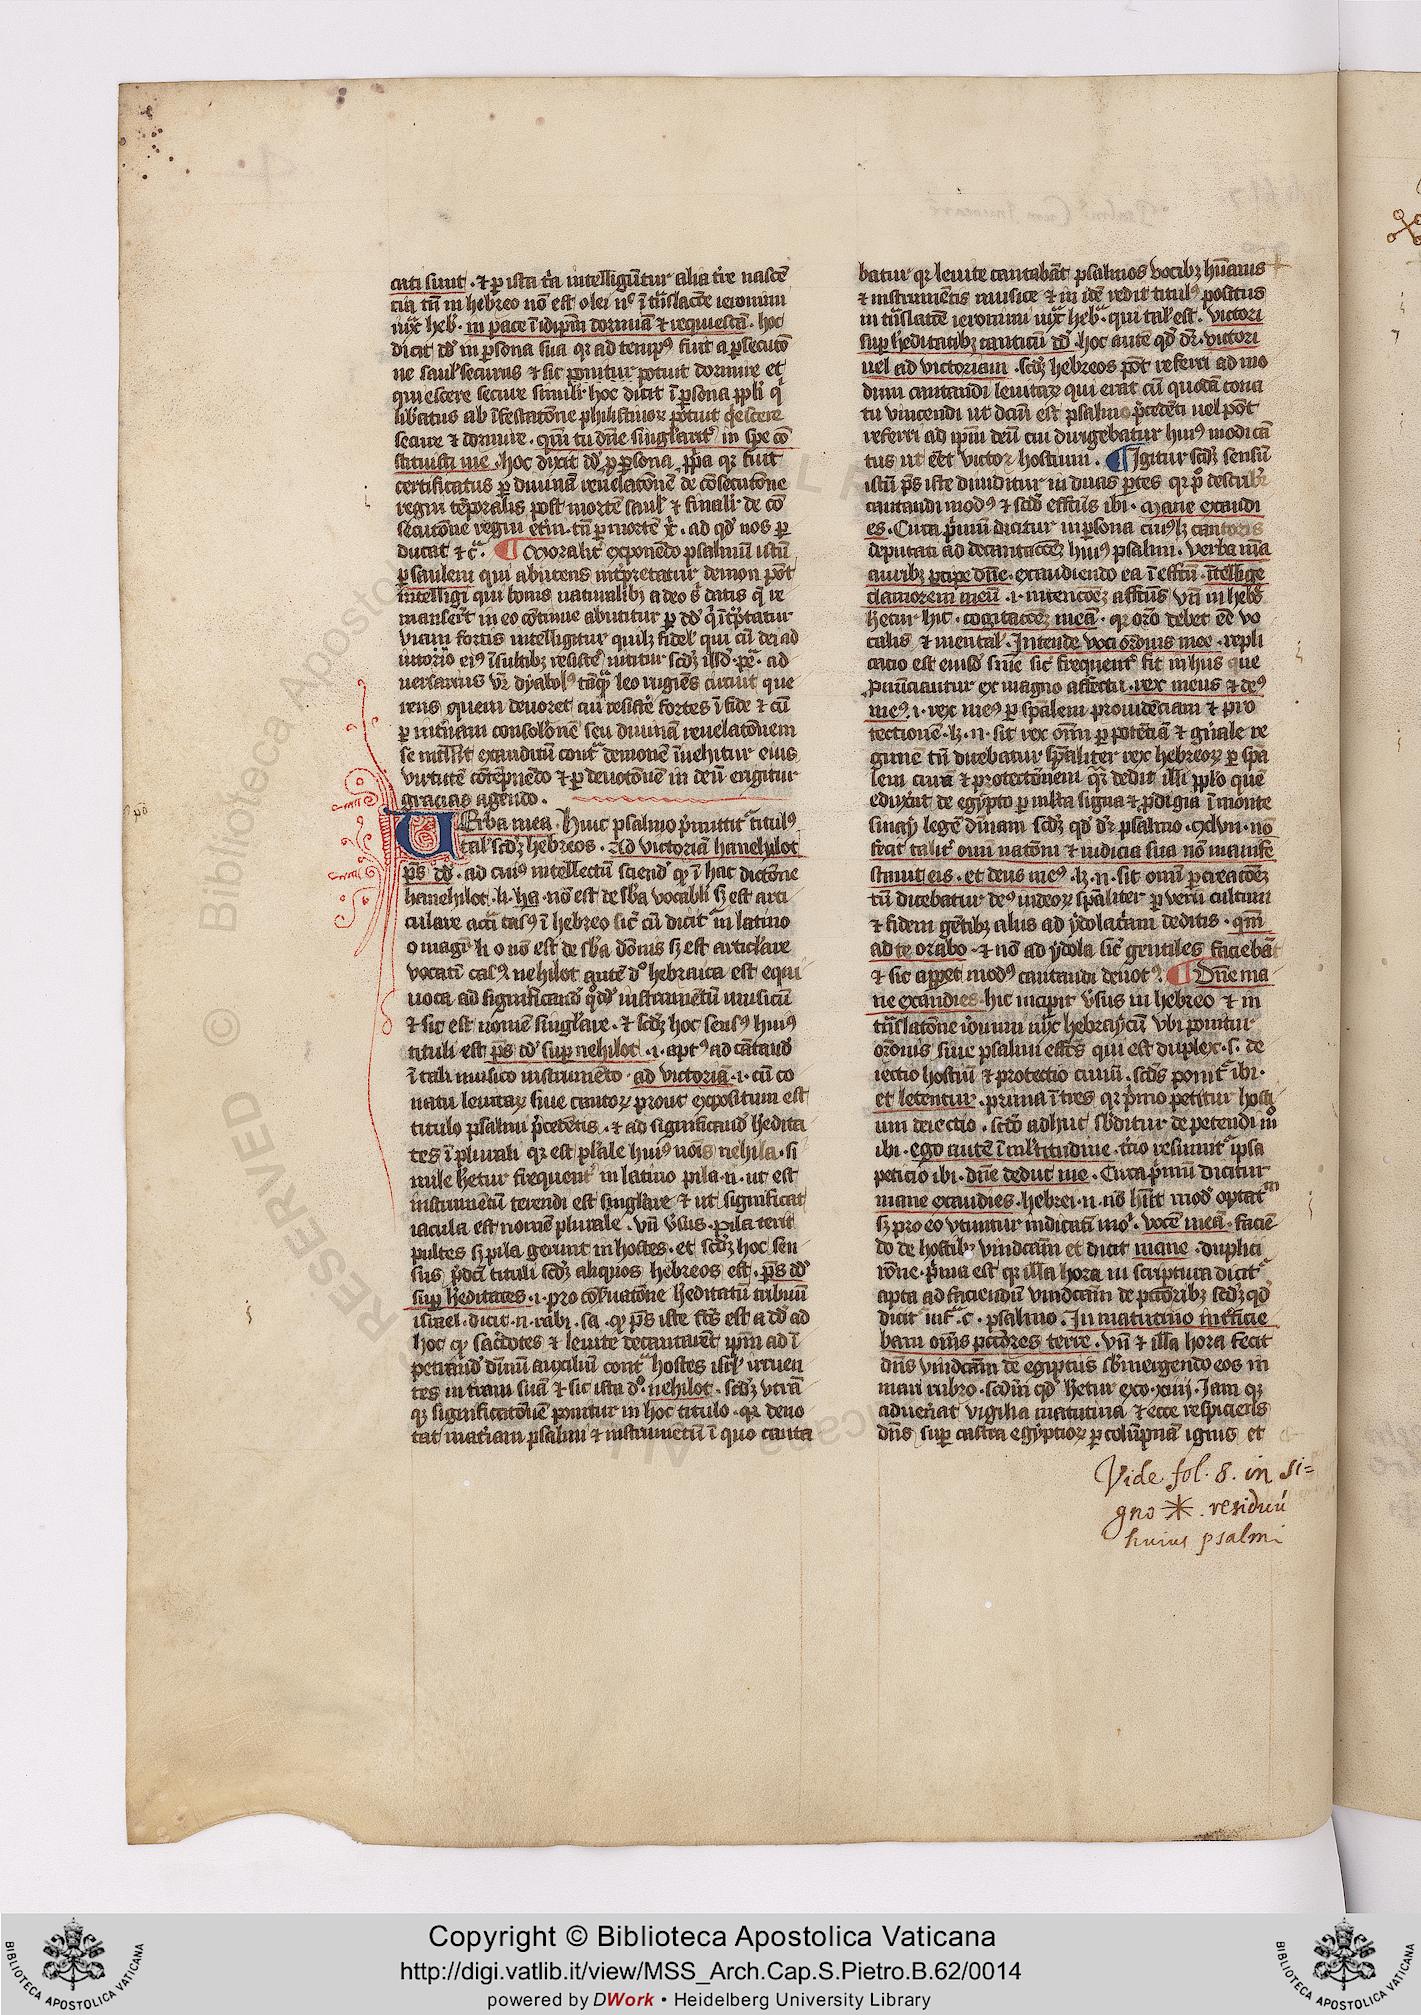 cati sunt . ⁊ ꝑ ista t̾ia intelligūtur alia t̾re nascē
cia tn̄ in hebreo nō est olei nͥ ī trāslacōe ieronimi
iux̄ heb̾ . in pace ī idip̄m dormiā ⁊ requiescā . hoc
dicit dd̄ in ꝑsona sua qꝛ ad tempꝰ fuit a ꝑsecutō
ne saul̾ securus ⁊ sic ponitur potuit dormire et
quiescere secure simili̾ hoc dicit ī ꝑsona pp̄li qͥ
lib̾atus ab īfestatōne philistinoꝝ potuit qͥescere
secure ⁊ dormire . qm̄ tu dn̄e singlarit̾ in spe cō
stituisti me . hoc dixit dd̄ ꝓ ꝑsona ꝓp̄a qꝛ fuit
certificatus ꝑ diuinā reuelatōnē de cōsecutōne
regni tēporalis post mortē saul̾ ⁊ finali̾ de cō
secutōne regni et̾ni . tn̄ ꝑ mortē xͥ . ad qd̄ nos ꝑ
ducat ⁊ c̾ . ¶ Moralit̾ exponēdo psalmū istū
ꝑ saulem qui abutens int̾pretatur demon pōt
intelligi qui bonis naturalibꝫ a deo sͥ datis q̄ re
manser̄t in eo cōtinue abutitur ꝑ dd̄ qͥ īt̾p̄tatur
uirtū fortis intelligitur quilꝫ fidel̾ qui cū dei ad
iutorio eiꝰ īsultibꝫ resistē̾ nititur scd̄ꝫ illd̄ . pe̾ . ad
uersarius vr̄ dyabolꝰ tāqͣ leo rugiēs circuit que
rens quem deuoret cui resistē̾ fortes ī fide ⁊ cū
ꝑ int̾nam consol̾onē seu diuinam reuelatōnem
se int̾llixit exauditū cont̾ demonē īuehitur eius
virtutē cōtēpnēdo ⁊ ꝑ deuotōnē in deū erigitur
gracias agendo .
UErba mea . Huic psalmo p̾mittit̾ titulꝰ
tal̾ scd̄ꝫ hebreos . Ad victoriā hanehylot
p̄s dd̄ . ad cuiꝰ intellectū sciend̄ qꝫ ī hac dictōne
hanehilot . h . ha . nō est de sb̾a vocabl̾i sꝫ est arti
culare acti casꝰ ī hebreo sic̾ cū dicit̾ in latino
o magr̄ li o nō est de sb̾a dōnis sꝫ est articl̾are
vocati casꝰ nehilot autē dͦ hebraica est equi
uoca ad significand̄ qd̄dā instrumētū musicū
⁊ sic est nomē singl̾are . ⁊ scd̄ꝫ hoc sensꝰ huiꝰ
tituli est p̄s dd̄ suꝑ nehilot . i . aptꝰ ad cātand̄
ī tali musico instrumēto . ad victoriā . i . cū co
natu leuitaꝝ siue cantoꝝ prout expositum est
titulo psalmi p̾cedētis . ⁊ ad significand̄ h̾edita
tes ī plurali qꝛ est pl̾rale huiꝰ nōis nehila . si
mile h̾etur frequent̾ in latino pila . n . ut est
instrumētū terendi est singl̾are ⁊ ut significat
iacula est nomē plurale . vn̄ v̾sus . Pila terit
pultes sꝫ pila gerunt in hostes . et scd̄ꝫ hoc sen
sus p̾dc̄i tituli scd̄ꝫ aliquos hebreos est . p̄s dd̄
suꝑ h̾editates . i . pro cōs̾uatōne h̾editatū tribuū
israel . dicit . n . rabi . sa . qꝫ p̄s iste fc̄s est a dd̄ ad
hoc qꝫ sac̾dotes ⁊ leuite decantarēt ip̄m ad ī
petrand̄ diuinū auxiliū cont̾ hostes isrl̾ irruen
tes in terram suā ⁊ sic ista dͦ . nehilot . scd̄ꝫ vtrā
qꝫ significatōnē ponitur in hoc titulo . qꝛ deno
tat mat̾iam psalmi ⁊ instrumētū ī quo canta
batur qꝛ leuite cantabāt psalmos vocibꝫ hūanis
⁊ instrumētis musice ⁊ in idē redit titulꝰ positus
in trāslatōe ieronimi iux̄ heb̾ . qui tal̾ est . victori
suꝑ h̾editatibꝫ canticū dd̄ . hoc autē qd̄ dr̄ . victori
uel ad victoriam . scd̄ꝫ hebreos pōt referri ad mo
dum cantandi leuitaꝝ qui erāt cū quodā cona
tu vincendi ut dc̄m est psalmo p̾cedēti uel pōt
referri ad ip̄m deū cui dirigebatur huiꝰmodi cā
tus ut eēt victor hostium . ¶ Igitur scd̄ꝫ sensū
istū p̄s iste diuiditur in duas ꝑtes qꝛ pͦ describit̾
cantandi modꝰ ⁊ scd̄o effectus ibi . Mane exaudi
es . Circa p̾mū dicitur in ꝑsona cuiuslꝫ cantoris
deputati ad decantaciōeꝫ huiꝰ psalmi . Verba mea
auribꝫ ꝑcipe dn̄e . exaudiendo ea ī effectu . ītellige
clamorem meū . i . intencōeꝫ affectus vn̄ in hebͦ
h̾etur hic . cogitacōeꝫ meā . qꝛ orō debet eē vo
calis ⁊ mental̾ . Intende voci orōnis mee . repli
catio est eiusd̄ sn̄ie sic̾ frequent̾ fit in hiis que
ꝓnūciantur ex magno affectu . rex meus ⁊ deꝰ
meꝰ . i . rex meꝰ ꝑ sp̄alem prouidēciam ⁊ pro
tectionē . lꝫ . n . sit rex oīm ꝑ potētiā ⁊ gn̄ale re
gimē tn̄ dicebatur sp̄aliter rex hebreoꝝ ꝑ sp̄a
lem curā ⁊ protectōnem qͣꝫ dedit illi pp̄lo quē
eduxit de egypto ꝑ mlt̾a signa ⁊ ꝓdigia ī monte
sinay legē diuinā scd̄ꝫ qd̄ dr̄ psalmo . cxlvii . nō
fecit talit̾ omi natōni ⁊ iudicia sua nō manife
stauit eis . et deus meꝰ . lꝫ . n . sit oīm ꝑ creacōeꝫ
tn̄ dicebatur deꝰ iudeoꝝ sp̄aliter ꝑ verū cultum
⁊ fidem gētibꝫ aliis ad ydolatriam deditis . qm̄
ad te orabo . ⁊ nō ad ydola sic̾ gentiles faciebāt
⁊ sic apꝑet modꝰ cantandi deuotꝰ . ¶ Dn̄e ma
ne exaudies . hic incipit v̾sus in hebreo ⁊ in
trāslatōne ieronimi iux̄ hebraycū vbi ponitur
orōnis siue psalmi effectꝰ qui est duplex . s . de
iectio hostiū ⁊ protectio ciuiū . scd̄s ponit̾ ibi .
et letentur . prima ī tres qꝛ p̾mo petitur hosti
um deiectio . scd̄o adhuc sb̾ditur de petendi mͦ
ibi . ego autē ī mlt̾itudine . t̾cio resumit̾ ipsa
peticio ibi . dn̄e deduc me . Circa p̾mū dicitur
mane exaudies . hebrei . n . nō hn̄t mod̄ optatiuū
sꝫ pro eo vtuntur indicati mͦ . vocē meā . faciē
do de hostibꝫ vindictam et dicit mane . duplici
rōne . p̾ma est qꝛ illa hora in scriptura dicit̾
apta ad faciendū vindictam de pctōribꝫ scd̄ꝫ qd̄
dicit̾ inf̾ . c . psalmo . In matutino int̾ficie
bam omēs pctōres terre . vn̄ ⁊ illa hora fecit
dn̄s vindictam de egiptiis sb̾mergendo eos in
mari rubro . scd̄m qd̄ h̾etur exo . xiiij . Iam qꝫ
aduenerat vigilia matutina ⁊ ecce respiciens
dn̄s suꝑ castra egyptioꝝ ꝑ colūpnā ignis et
Vide fol. 8. in si=
gno ✳ . residuū
huius psalmi
Copyright © Biblioteca Apostolica Vaticana
http://digi.vatlib.it/view/MSS_Arch.Cap.S.Pietro.B.62/0014
powered by DWork • Heidelberg University Library
BIBLIOTECA APOSTOLICA VATICANA
BIBLIOTECA APOSTOLICA VATICANA